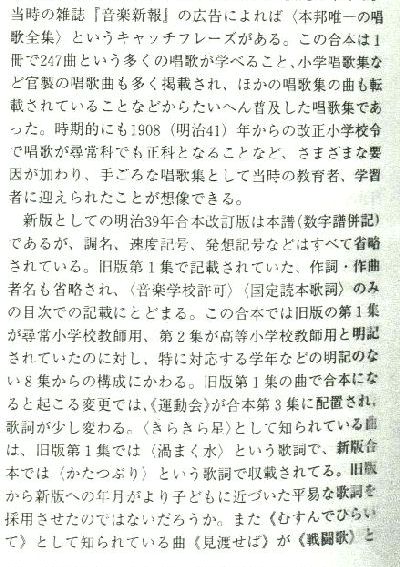 当時の雑誌『音楽新報』の広告によれば〈本邦唯一の唱
歌全集〉というキャッチフレーズがある。この合本は1
冊で247曲という多くの唱歌が学べること、小学唱歌集な
ど官製の唱歌曲も多く掲載され、ほかの唱歌集の曲も転
載されていることなどからたいへん普及した唱歌集であ
った。時期的にも1908（明治41）年からの改正小学校令
で唱歌が尋常科でも正科となることなど、さまざまな要
因が加わり、手ごろな唱歌集として当時の教育者、学習
者に迎えられたことが想像できる。
　新版としての明治39年合本改訂版は本譜(数字譜併記)
であるが、調名、速度記号、発想記号などはすべて省略
されている。旧版第1集で記載されていた、作詞・作曲
者名も省略され、〈音楽学校許可〉〈国定読本歌詞〉のみ
の目次での記載にとどまる。この合本では旧版の第1集
が尋常小学校教師用、第2集が高等小学校教師用と明記
されていたのに対し、特に対応する学年などの明記のな
い8集からの構成にかわる。旧版第1集の曲で合本にな
ると起こる変更では、《運動会》が合本第3集に配置され、
歌詞が少し変わる。〈きらきら星〉として知られている曲
は、旧版第1集では〈渦まく水〉という歌詞で、新版合
本では〈かたつぶり〉という歌詞で収載されてる。旧版
から新版への年月がより子どもに近づいた平易な歌詞を
採用させたのではないだろうか。また《むすんでひらい
て》として知られている曲《見渡せば》が《戦闘歌》と